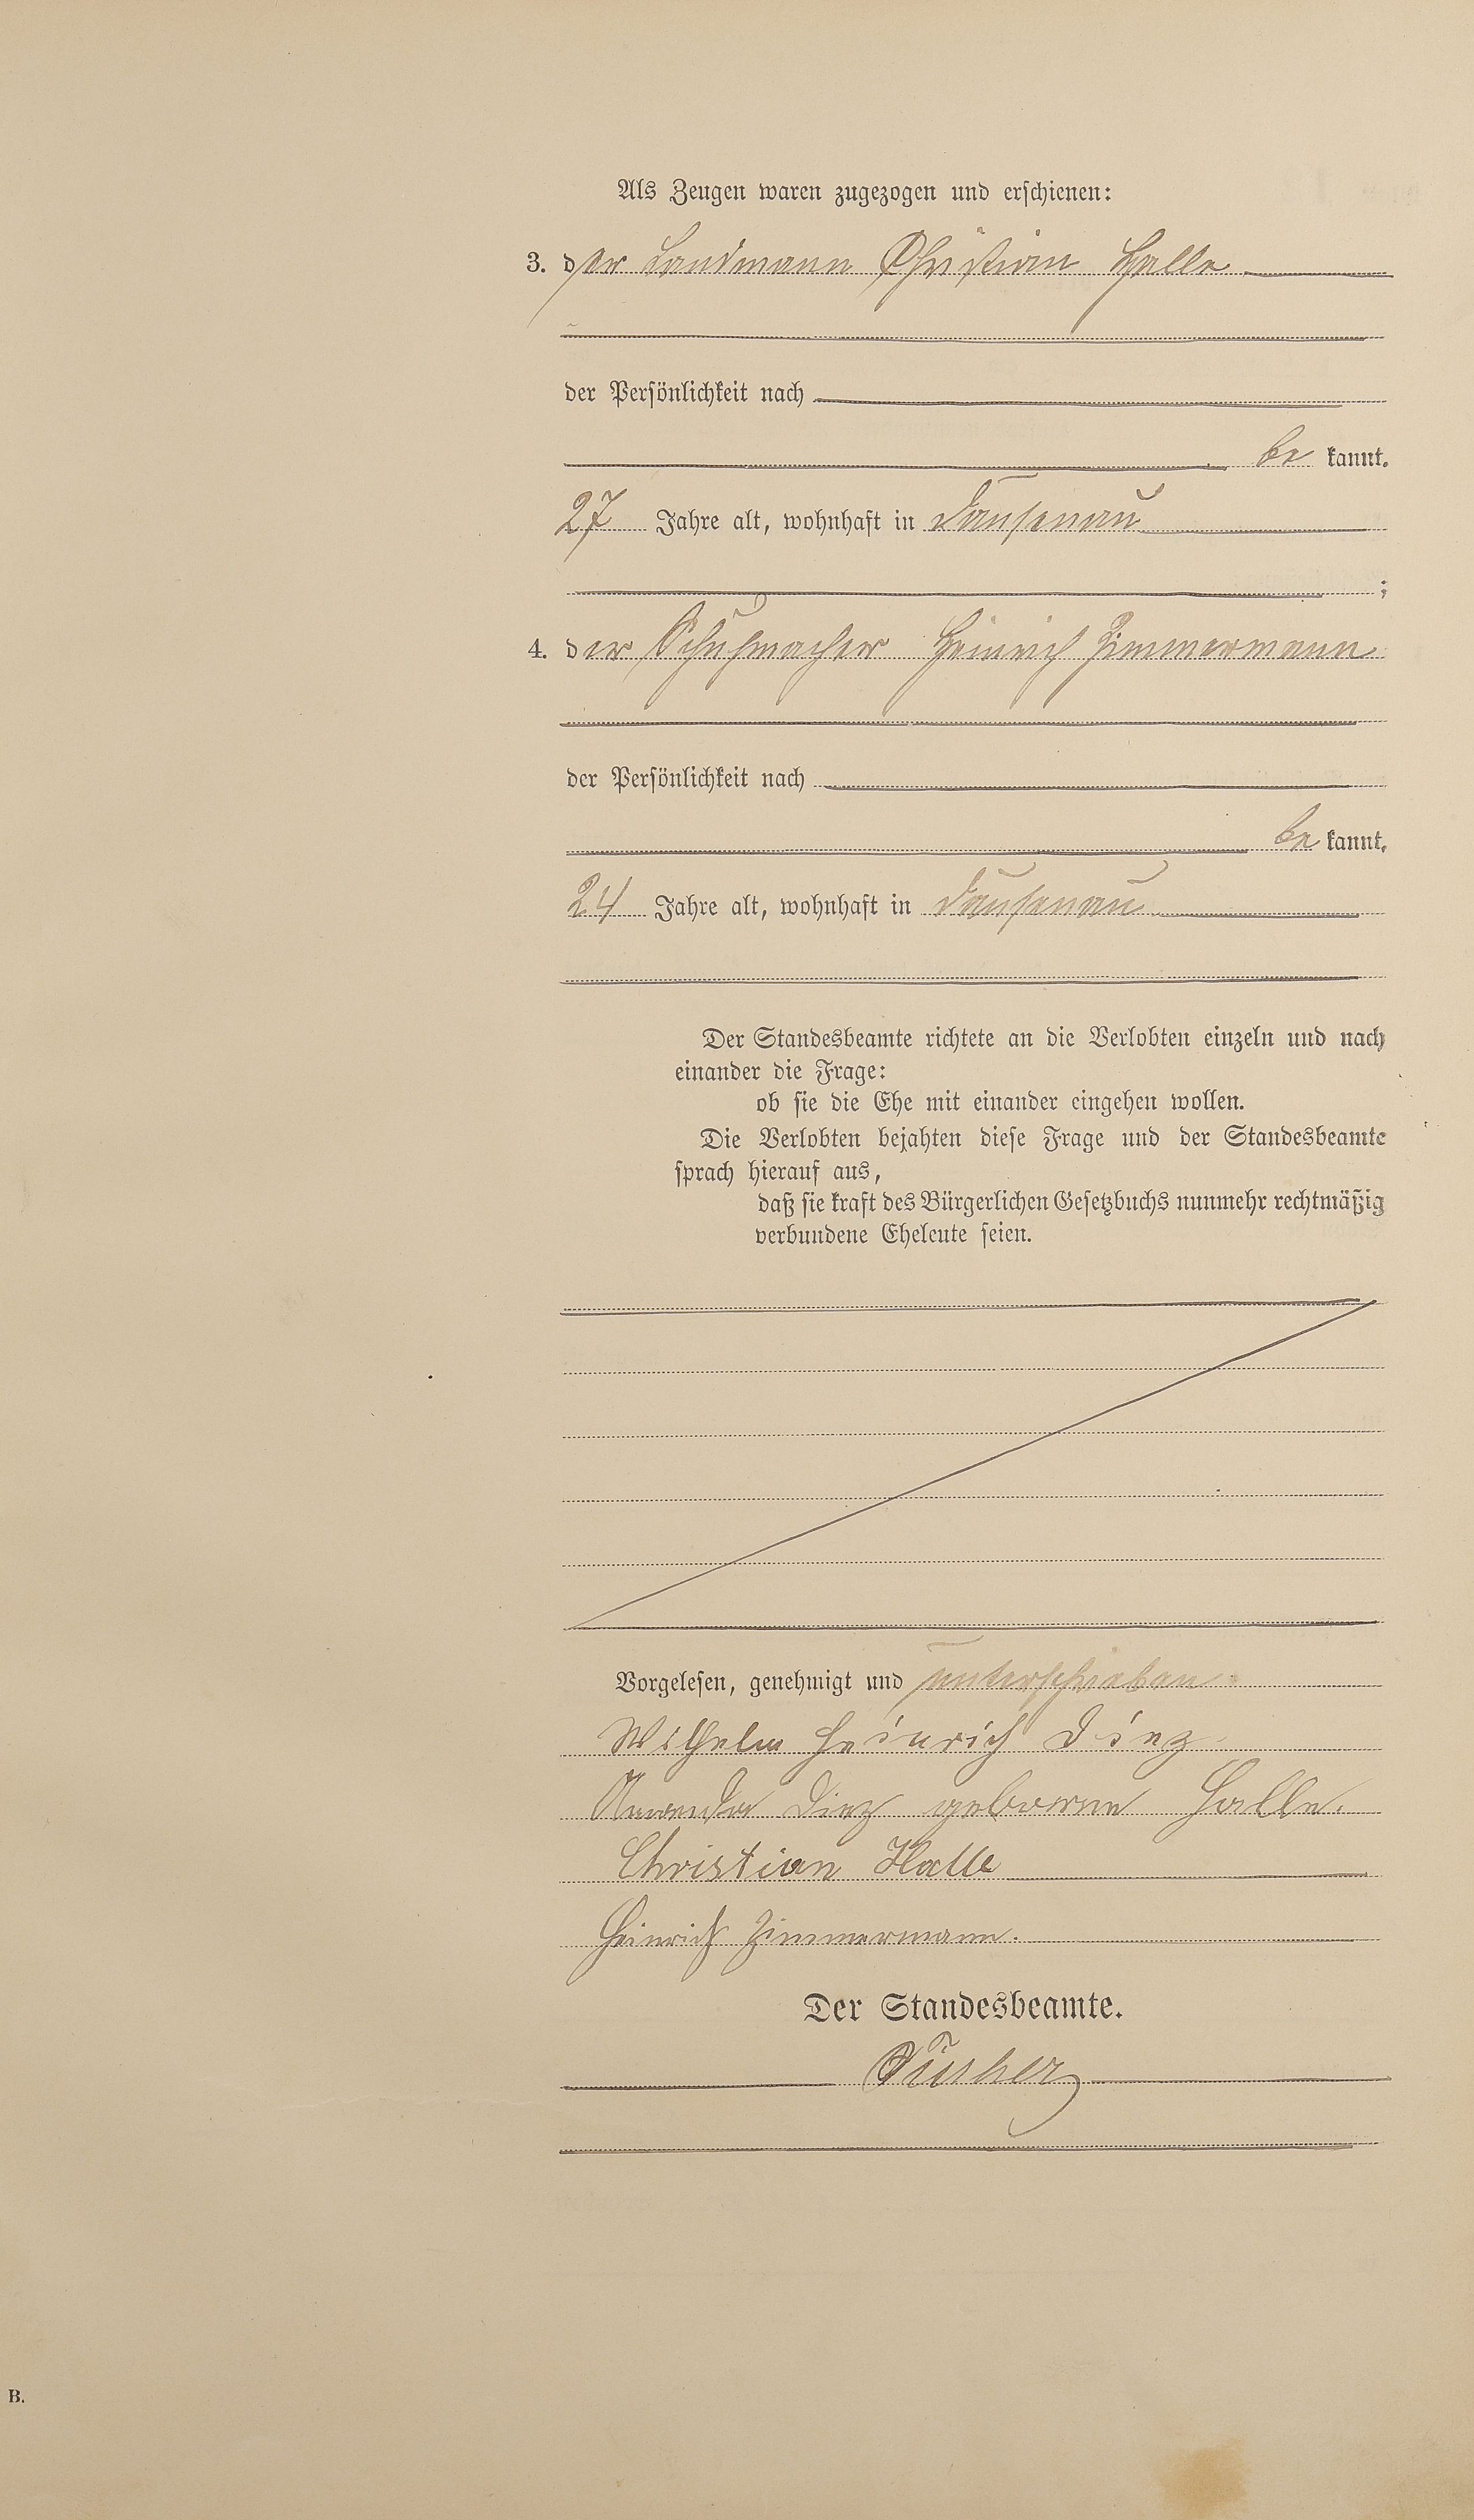 Als Zeugen waren zugezogen und erschienen:
3. der Landmann Christian Halle
der Persönlichkeit nach
be kannt.
27 Jahre alt, wohnhaft in Dausenau
;
4. der Schuhmacher Heinrich Zimmermann
der Persönlichkeit nach
be kannt,
24 Jahre alt, wohnhaft in Dausenau
Der Standesbeamte richtete an die Verlobten einzeln und nach
einander die Frage:
ob sie die Ehe mit einander eingehen wollen.
Die Verlobten bejahten diese Frage und der Standesbeamte
sprach hierauf aus,
daß sie kraft des Bürgerlichen Gesetzbuchs nunmehr rechtmäßig
verbundene Eheleute seien.
Vorgelesen, genehmigt und unterschrieben.
Wilhelm Heinrich Dinz
Dinz geborene Halle.
Christian Halle
Heinrich Zimmermann.
Der Standesbeamte.
B.